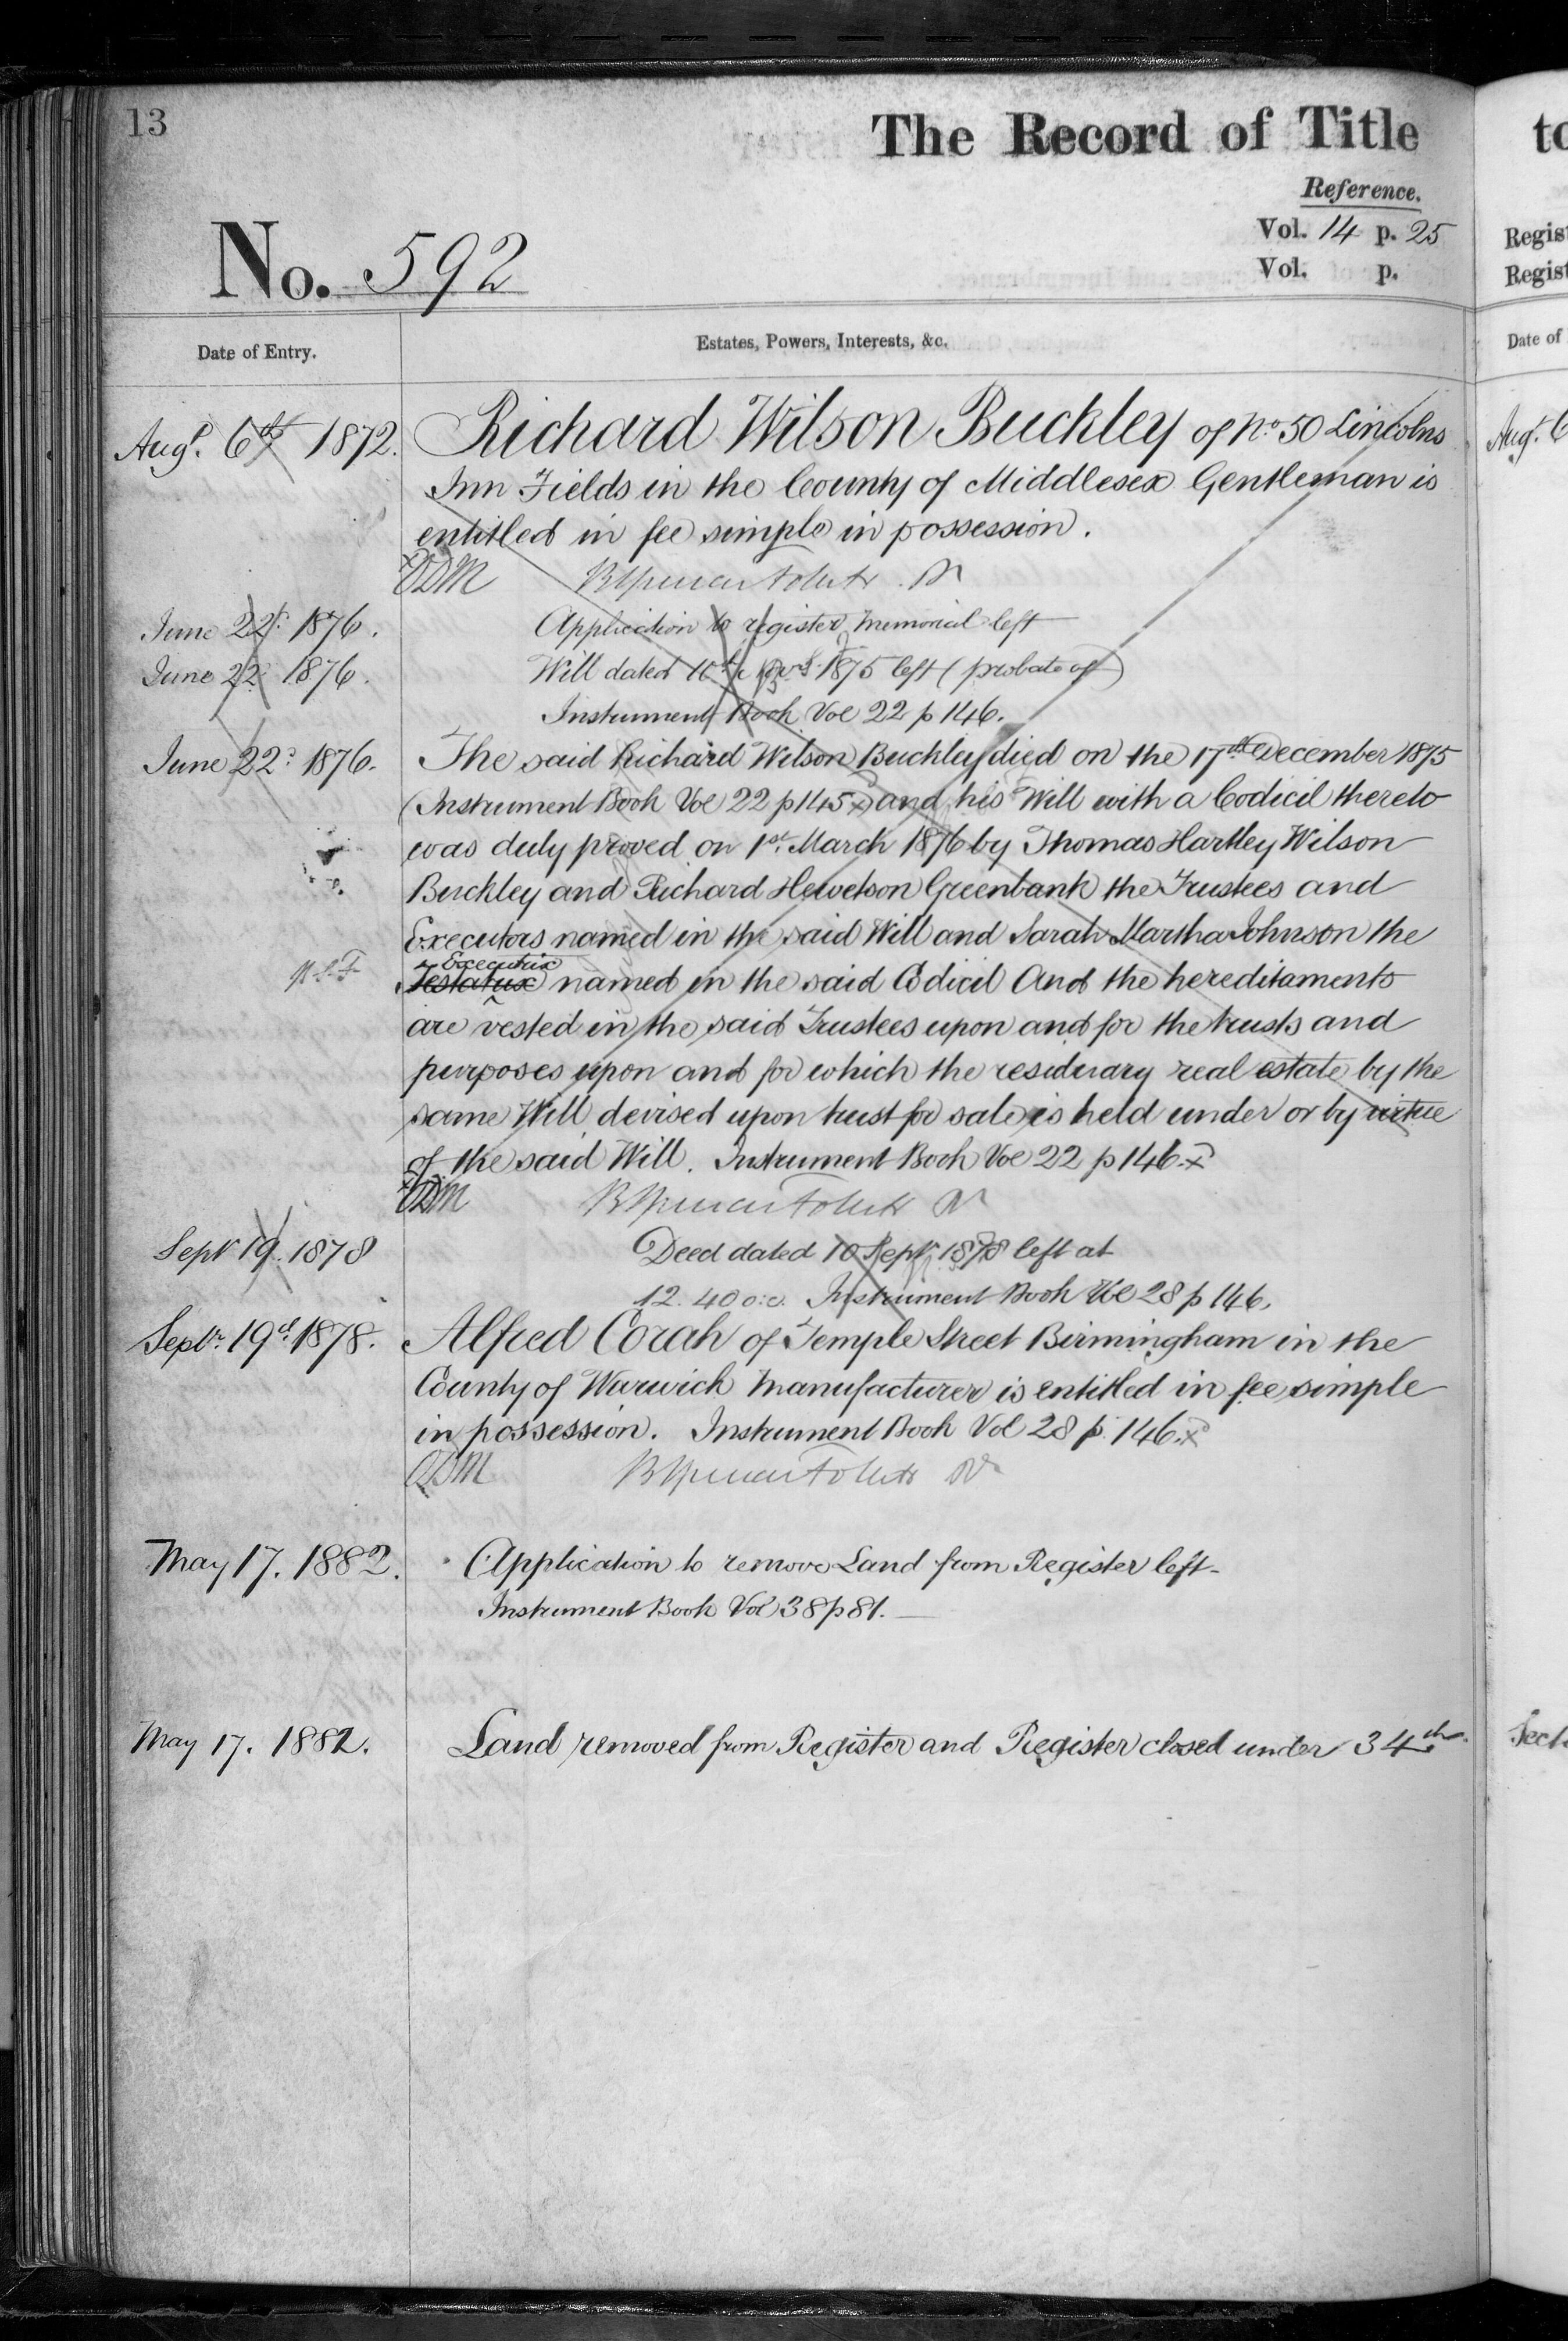 13
The Record of Title
Reference.
Vol. 14 p. 25
No. 592
Vol. p.
Date of Entry.
Estates, Powers, Interests, &c.
Augt. 6th 1872.
Richard Wilson Buckley of No. 50 Lincolns
Inn Fields in the County of Middlesex Gentleman is
entitled in fee simple in possession.
June 22d. 1876.
Application to register memorial left
June 22 1876.
Will dated 1875 left (probate of)
Instrument Book Vol 22 p 146.
June 22d 1876.
The said Richard Wilson Buckley died on the 17th December 1875
(Instrument Book Vol 22 p 145 x) and his Will with a Codicil thereto
was duly proved on 1st. March 1876 by Thomas Hartley Wilson
Buckley and Richard Hewetson Greenbank the Trustees and
Executors named in the said Will and Sarah Martha Johnson the
Executrix
Testatrix named in the said Codicil And the hereditaments
are vested in the said Trustees upon and for the trusts and
purposes upon and for which the residuary real estate by the
same Will devised upon trust for sale is held under or by virtue
of the said Will. Instrument Book Vol 22 p 146. x
Sept 19. 1878
Deed dated 10 Sept 1878 left at
12.40 o.c. Instrument Book Vol 28 p 146.
Septr. 19th. 1878.
Alfred Corah of Temple Street Birmingham in the
County of Warwick Manufacturer is entitled in fee simple
in possession. Instrument Book Vol 28 p 146. x
May 17. 1882.
Application to remove Land from Register left
Instrument Book Vol 38 p 81.
May 17. 1882.
Land removed from Register and Register closed under 34th.
to
Regist
Regist
Date of
Augt. 6
Sect.